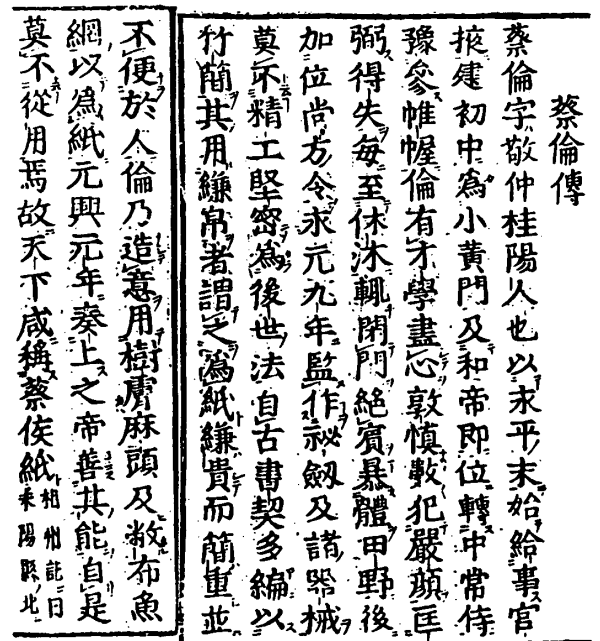 蔡倫傳
蔡倫字敬仲桂陽人也以永平末始給事官
掖建初中爲小黃門及和帝即位轉中常侍
豫參帷幄倫有才學盡心敦慎數犯嚴顔匡
弼得失每至休沐輒閉門絕賓暴體田野後
加位尚方令永元九年監作祕劒及諸器械
莫不精工堅密爲後世法自古書契多編以
竹簡其用縑帛者謂之爲紙縑貴而簡重並
不便於人倫乃造意用樹膚麻頭及敝布魚
網以爲紙元興元年奏上之帝善其能自是
莫不從用焉故天下咸稱蔡侯紙
相州記曰
耒陽縣北